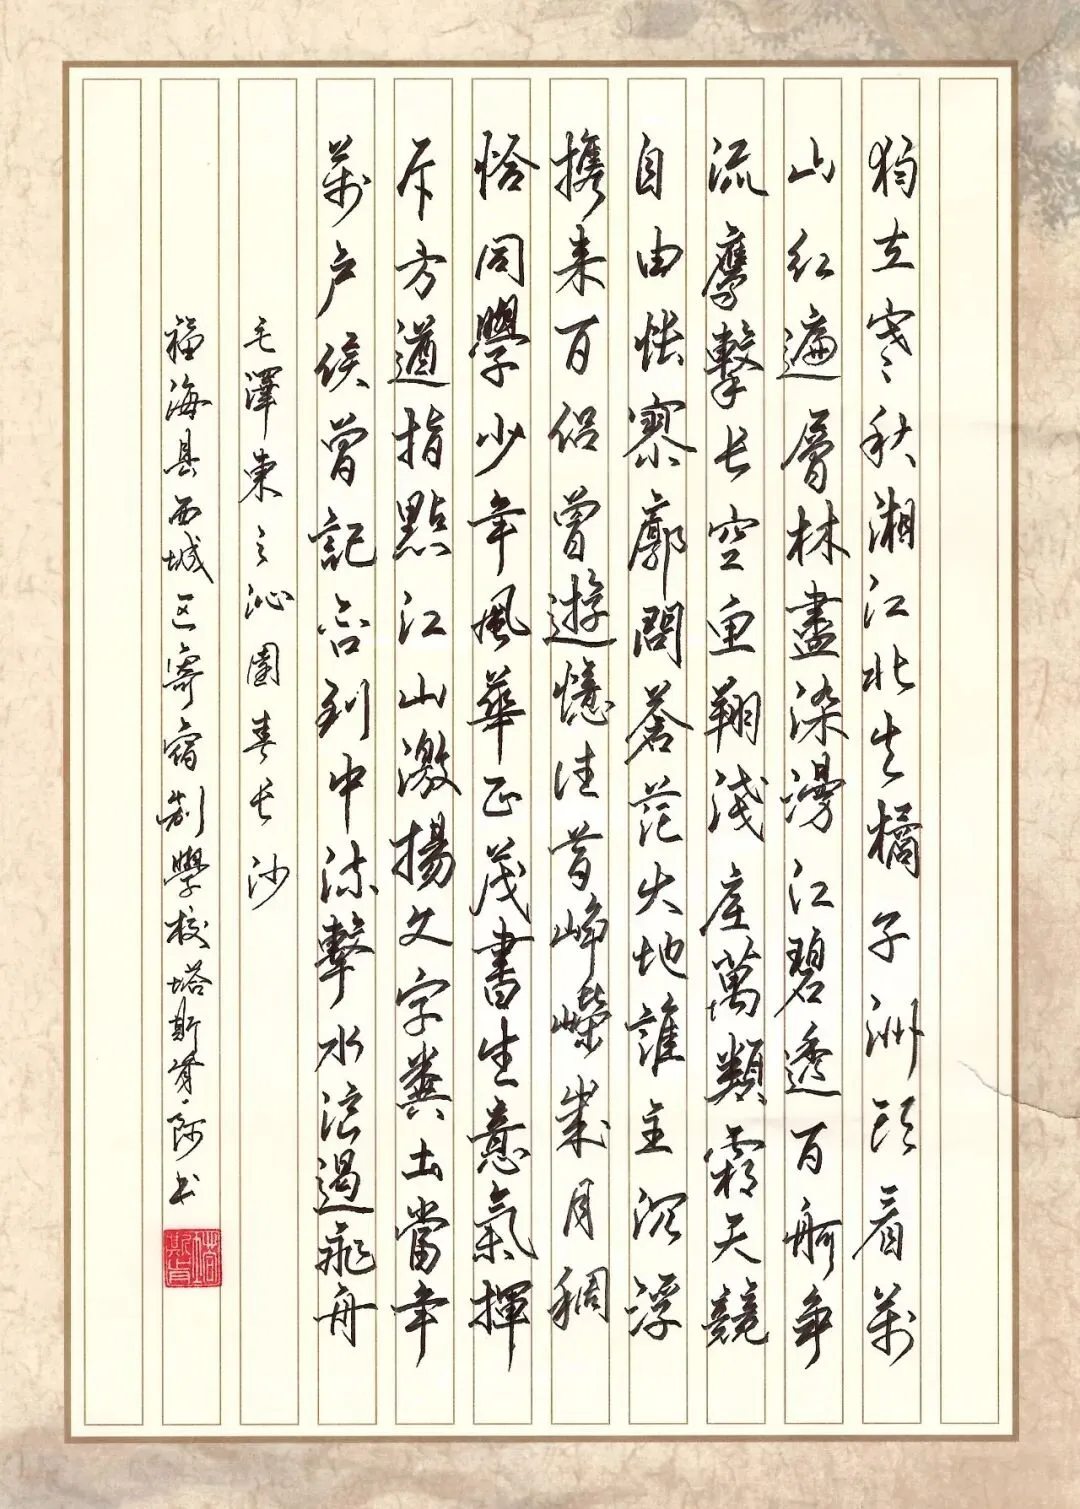 独立寒秋湘江北去橘子洲头看万
山红遍層林盡染漫江碧透百舸争
流鷹擊长空鱼翔浅底萬類霜天競
自由怅寥廓問蒼茫大地誰主沉浮
携来百侣曾遊憶往昔峥嵘歲月稠
恰同學少年風華正茂書生意氣揮
斥方遒指點江山激揚文字糞土當年
万户侯曾記否到中流擊水浪遏飛舟
毛澤東之沁園春长沙
福海县西城区寄宿制學校塔斯肯·阿书
塔斯肯